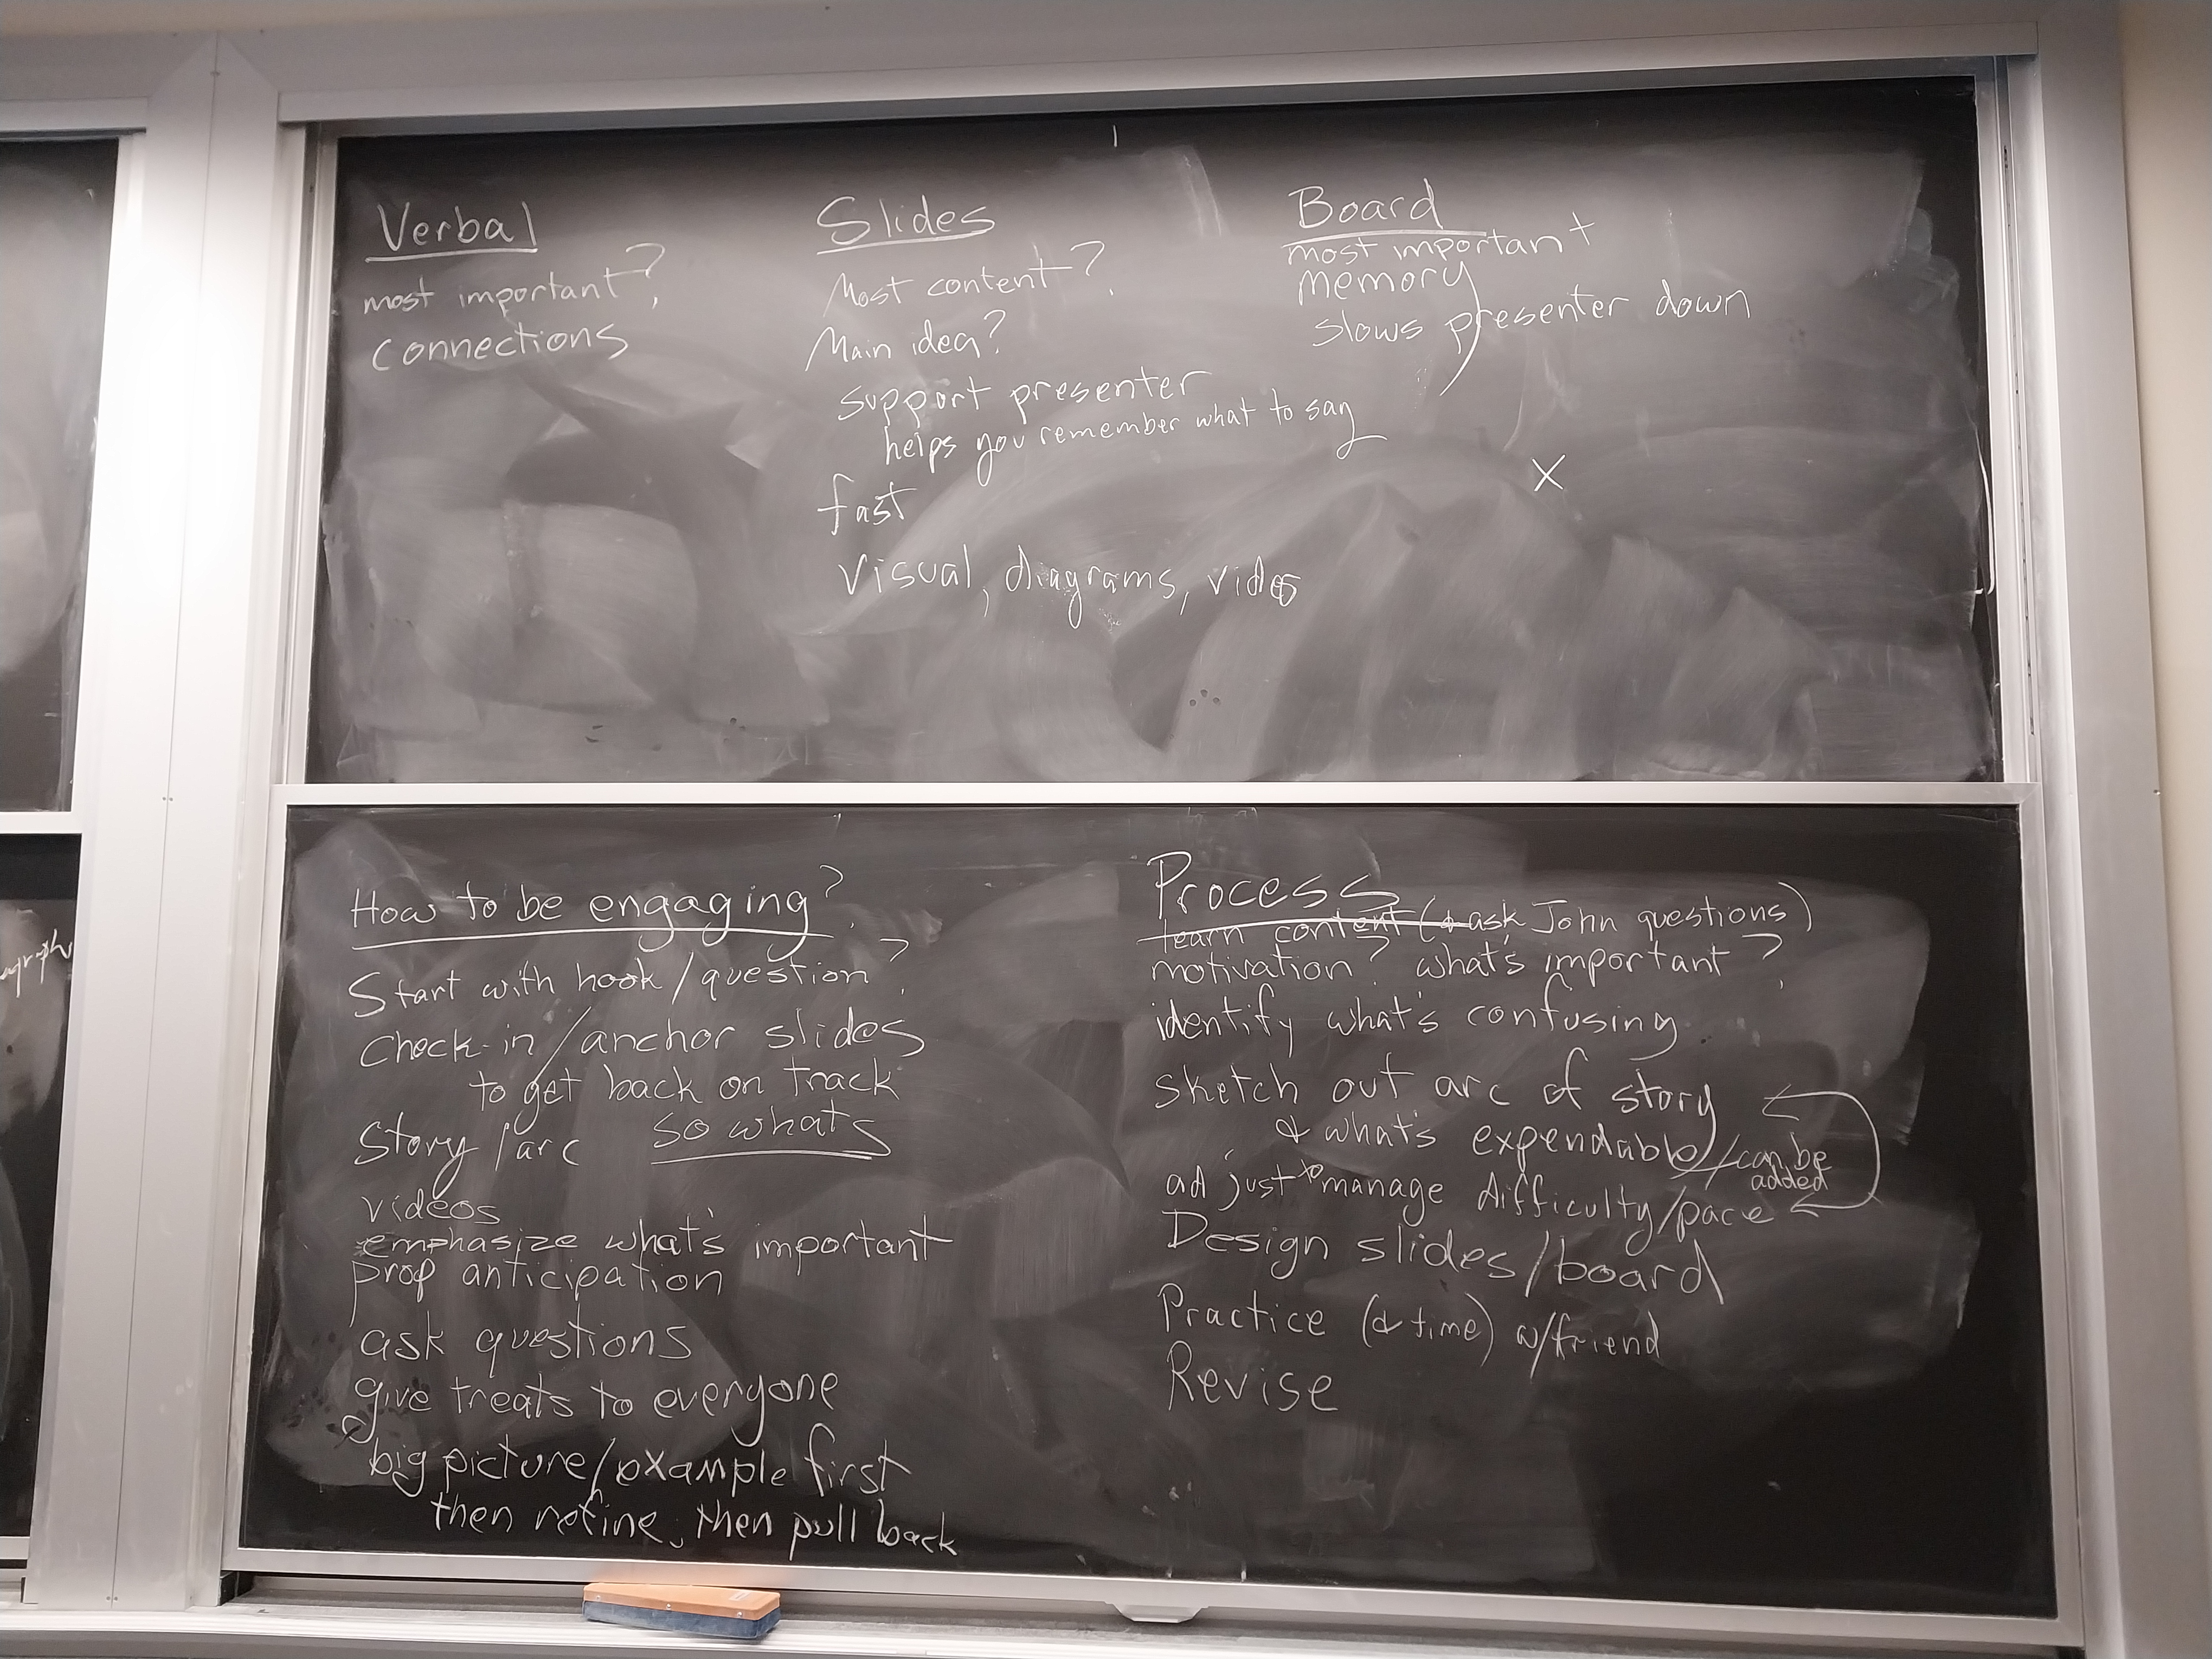 Verbal
most important?
connections
Slides
Most content?
Main idea?
support presenter
helps you remember what to say
fast
Visual, diagrams, video
Board
most important
memory
slows presenter down
X
How to be engaging?
Start with hook/question?
check-in/anchor slides
to get back on track
Story/arc so whats
videos
emphasize what's important
prop anticipation
ask questions
give treats to everyone
big picture/example first
then refine, then pull back
Process
learn content (& ask John questions)
motivation? what's important?
identify what's confusing
sketch out arc of story
& what's expendable/can be
added
adjust to manage difficulty/pace
Design slides/board
Practice (& time) w/friend
Revise